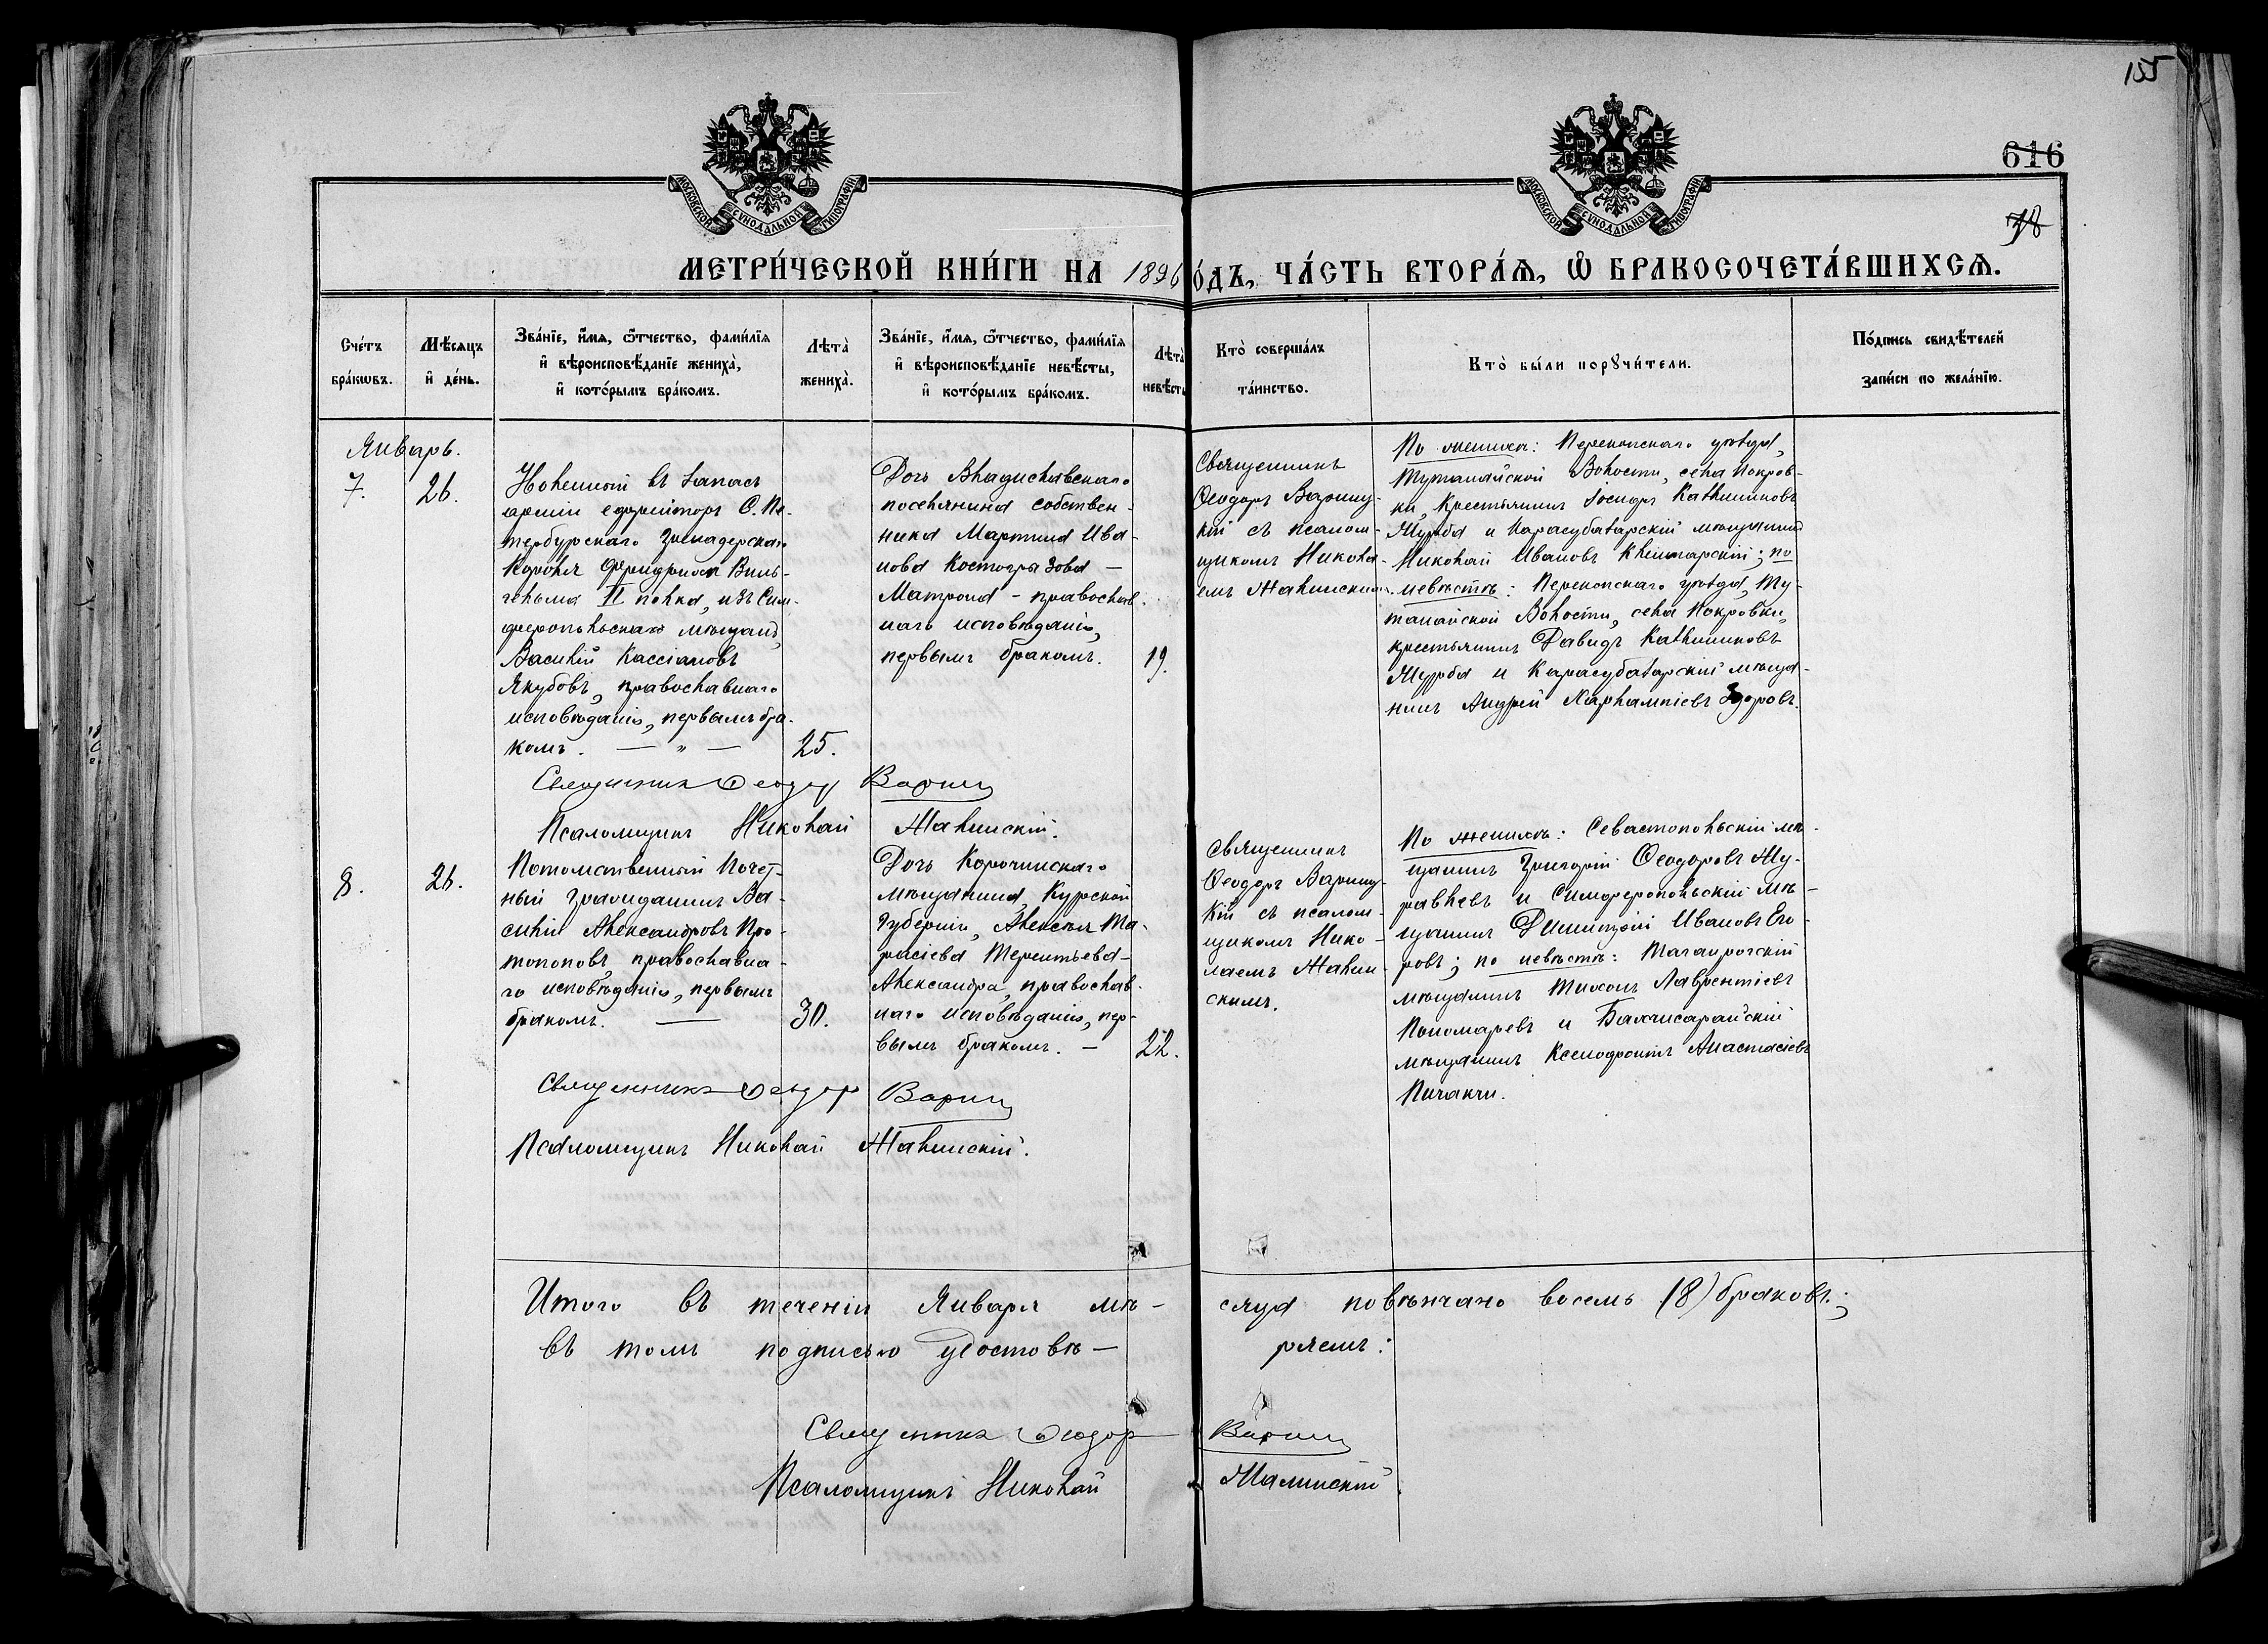 155
616
МОСКОВСКОЙ СУНОДАЛЬНОЙ ТИПОГРАФІИ
МОСКОВСКОЙ СУНОДАЛЬНОЙ ТИПОГРАФІИ
МЕТРИ́ЧЕСКОЙ КНИ́ГИ НА 1896 О́ДЪ, ЧА́СТЬ ВТОРА́Ѧ, Ѡ҆ БРАКОСОЧЕТА́ВШИХСѦ.
Сче́тъ бра́кѡвъ.
Мѣ́сяцъ и҆ де́нь.
Зва́нїе, и҆́мѧ, ѻ҆́тчество, фами́лїѧ и҆ вѣроисповѣ́данїе жениха̀, и҆ кото́рымъ бра́комъ.
Лѣта̀ жениха̀.
Зва́нїе, и҆́мѧ, ѻ҆́тчество, фами́лїѧ и҆ вѣроисповѣ́данїе невѣ́сты, и҆ кото́рымъ бра́комъ.
Лѣта̀ невѣ́сты
Кто̀ соверша́лъ та́инство.
Кто̀ бы́ли порꙋчи́тели.
По́дпись свидѣ́телей за́писи по жела́нїю.
Январь.
7.
26.
Уволенный въ запасъ
арміи ефрейторъ С. Пе-
тербургскаго Гренадерскаго
Короля Фридриха Виль-
гельма II полка, изъ Сим-
феропольскихъ мѣщанъ,
Василій Кассіановъ
Якубовъ, православнаго
исповѣданія, первымъ бра-
комъ. — „ —
25.
Дочь Владиславскаго
поселянина собствен-
ника Мартина Ива-
нова Костогрызова —
Матрона - православ-
наго исповѣданія,
первымъ бракомъ.
19.
Священникъ
Ѳеодоръ Вариц-
кій съ псалом-
щикомъ Никола-
емъ Жалинскимъ.
По женихѣ: Перекопскаго уѣзда,
Тутанайской Волости, села Покров-
ки, крестьянинъ Іосифъ Каллиниковъ
Журба и Карасубазарскій мѣщанинъ
Николай Ивановъ ; по
невѣстѣ: Перекопскаго уѣзда, Ту-
танайской Волости, села Покровки,
крестьянинъ Давидъ Каллиниковъ
Журба и Карасубазарскій мѣща-
нинъ Андрей Харлампіевъ Здоровъ.
Священникъ Ѳеодоръ Вариц
Псаломщикъ Николай Жалинскій.
8.
26.
Потомственный Почет-
ный Гражданинъ Ва-
силій Александровъ Про-
топоповъ, православна-
го исповѣданія, первымъ
бракомъ. —
30.
Дочь Корочинскаго
мѣщанина, Курской
Губерніи, Алексѣя Та-
расіева Терентьева —
Александра, православ-
наго исповѣданія, пер-
вымъ бракомъ. —
22.
Священникъ
Ѳеодоръ Вариц-
кій съ псалом-
щикомъ Нико-
лаемъ Жалин-
скимъ.
По женихѣ: Севастопольскій мѣ-
щанинъ Григорій Ѳеодоровъ Жу-
равлевъ и Симферопольскій мѣ-
щанинъ Димитрій Ивановъ Его-
ровъ; по невѣстѣ: Таганрогскій
мѣщанинъ Тихонъ Лаврентіевъ
Пономаревъ и Бахчисарайскій
мѣщанинъ Ксенофонтъ Анастасіевъ
Пичакчи.
Священникъ Ѳеодоръ Вариц
Псаломщикъ Николай Жалинскій.
Итого въ теченіи Января мѣ-сяца повѣнчано восемь (8) браковъ;
въ томъ подписью удостовѣ-ряемъ:
Священникъ Ѳеодоръ Вариц
Псаломщикъ Николай Жалинскій